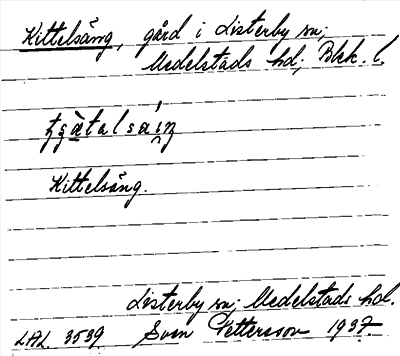 Kittelsäng, gård i Listerby sn;
Medelstads hd; Blek. l.
Kittelsäng.
Listerby sn; Medelstads hd.
LAL. 3539. Sven Pettersson 1937.